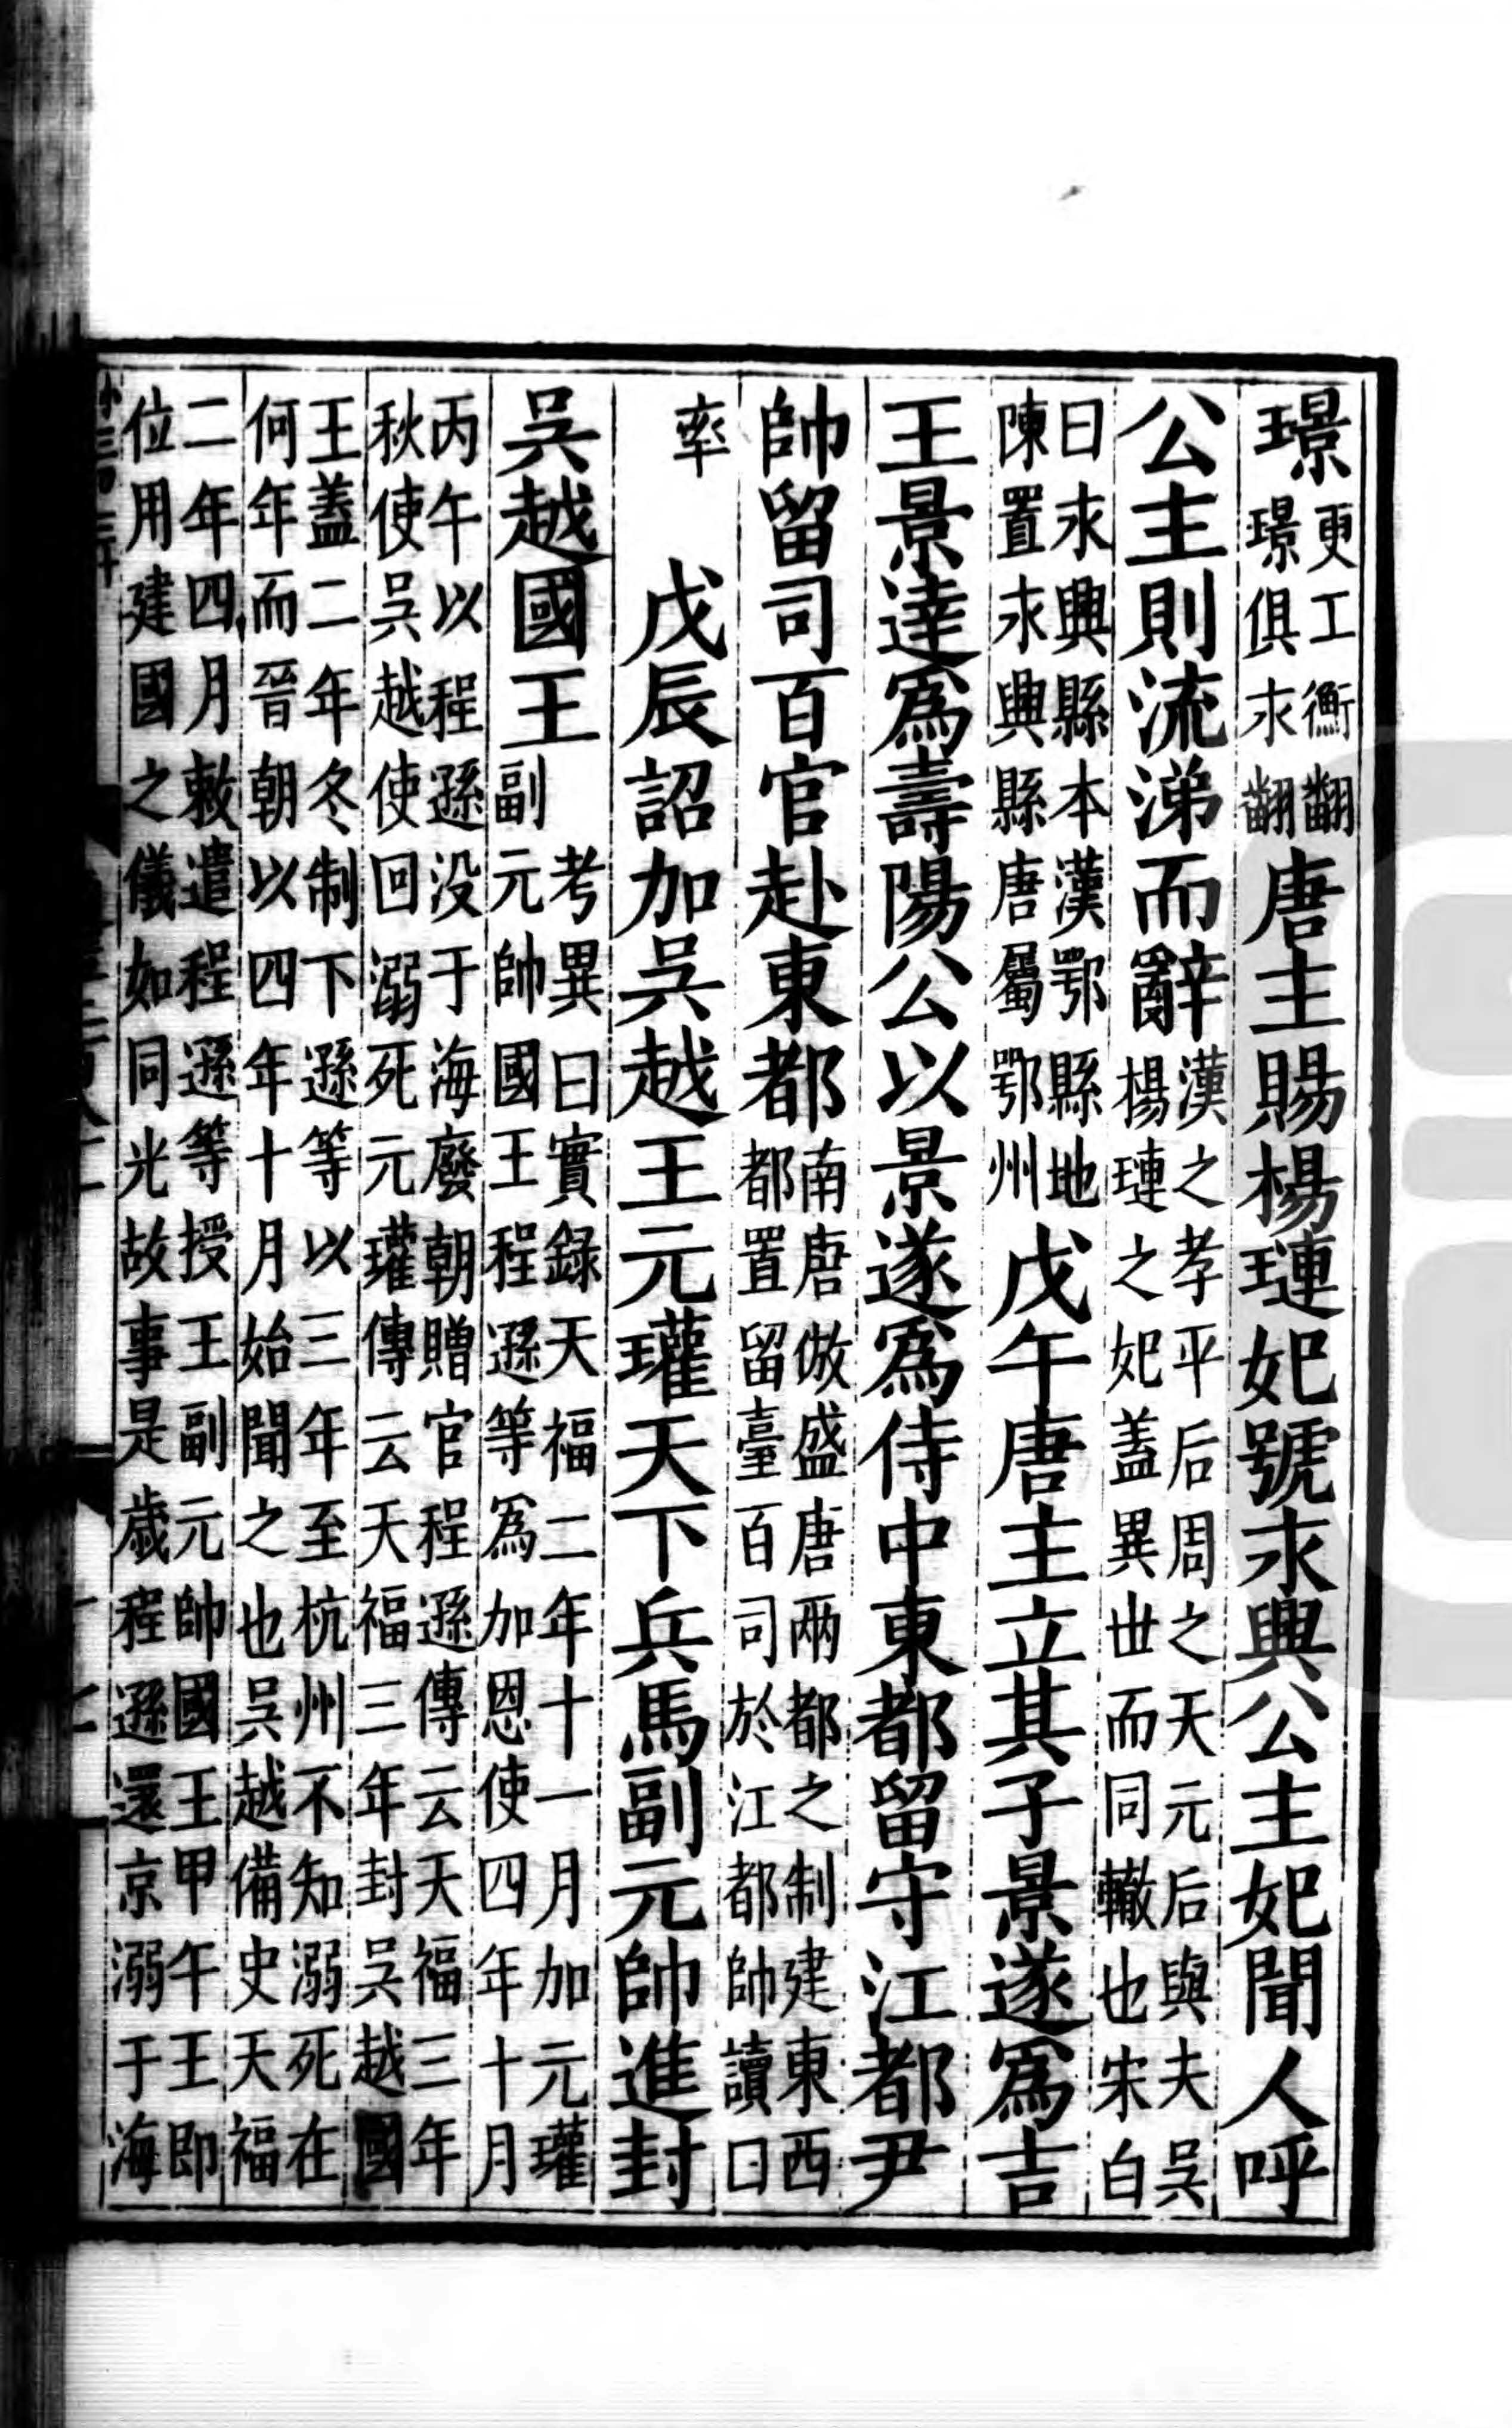 璟更工衡翻璟俱永翻唐主賜楊璉妃號永興公主妃聞人呼
公主則流涕而辭漢之孝平后周之天元后與夫吳楊璉之妃蓋異世而同轍也宋白
曰永興縣本漢鄂縣地陳置永興縣唐屬鄂州戊午唐主立其子景遂爲吉
王景達爲壽陽公以景遂爲侍中東都留守江都尹
帥留司百官赴東都南唐倣盛唐兩都之制建東西都置留臺百司於江都帥讀曰
率戊辰詔加吳越王元瓘天下兵馬副元帥進封
吳越國王考異曰實錄天福二年十一月加元瓘副元帥國王程遜等爲加恩使四年十月
丙午以程遜没于海廢朝贈官程遜傳云天福三年秋使吳越使回溺死元瓘傳云天福三年封吳越國
王蓋二年冬制下遜等以三年至杭州不知溺死在何年而晉朝以四年十月始聞之也吳越備史天福
二年四月敕遣程遜等授王副元帥國王甲午王即位用建國之儀如同光故事是歲程遜還京溺于海